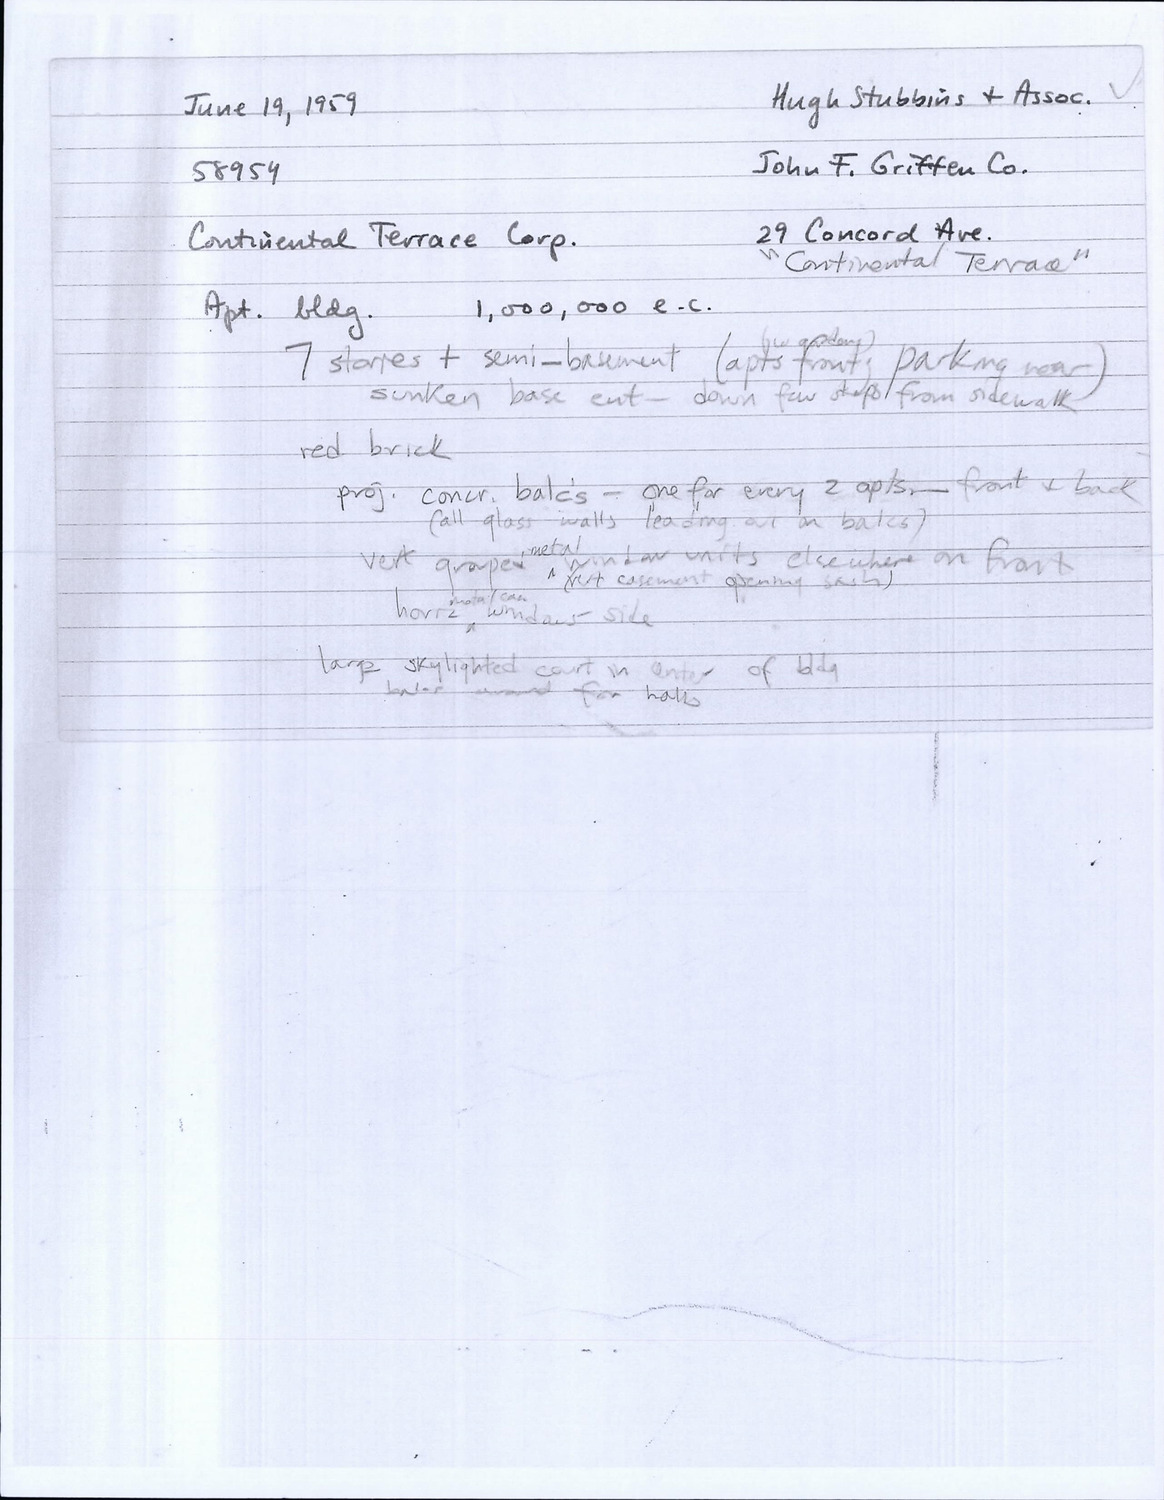 June 19, 1959
Hugh Stubbins + Assoc.
58954
John F. Griffen Co.
Continental Terrace Corp.
29 Concord Ave.
"Continental Terrace"
Apt. bldg. 1,000,000 e.c.
7 stories + semi-basement (apts front; parking rear)
sunken base ent — down few steps from sidewalk
red brick
proj. concr. balc's — one for every 2 apts. — front + back
(all glass walls leading out on balcs)
vert grouped metal window units elsewhere on front
(vert casement opening sash)
horiz windows side
large skylighted court in center of bldg
balcs around for halls